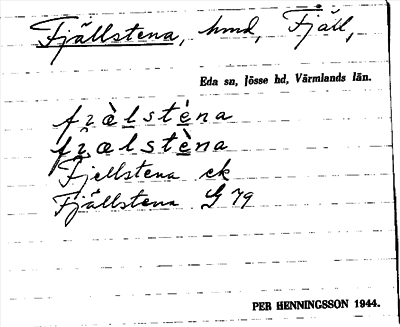 Fjällstena, hmd, Fjäll,
Eda sn, Jösse hd, Värmlands län.
Fjellstena ek
Fjällstena G 79
PER HENNINGSSON 1944.